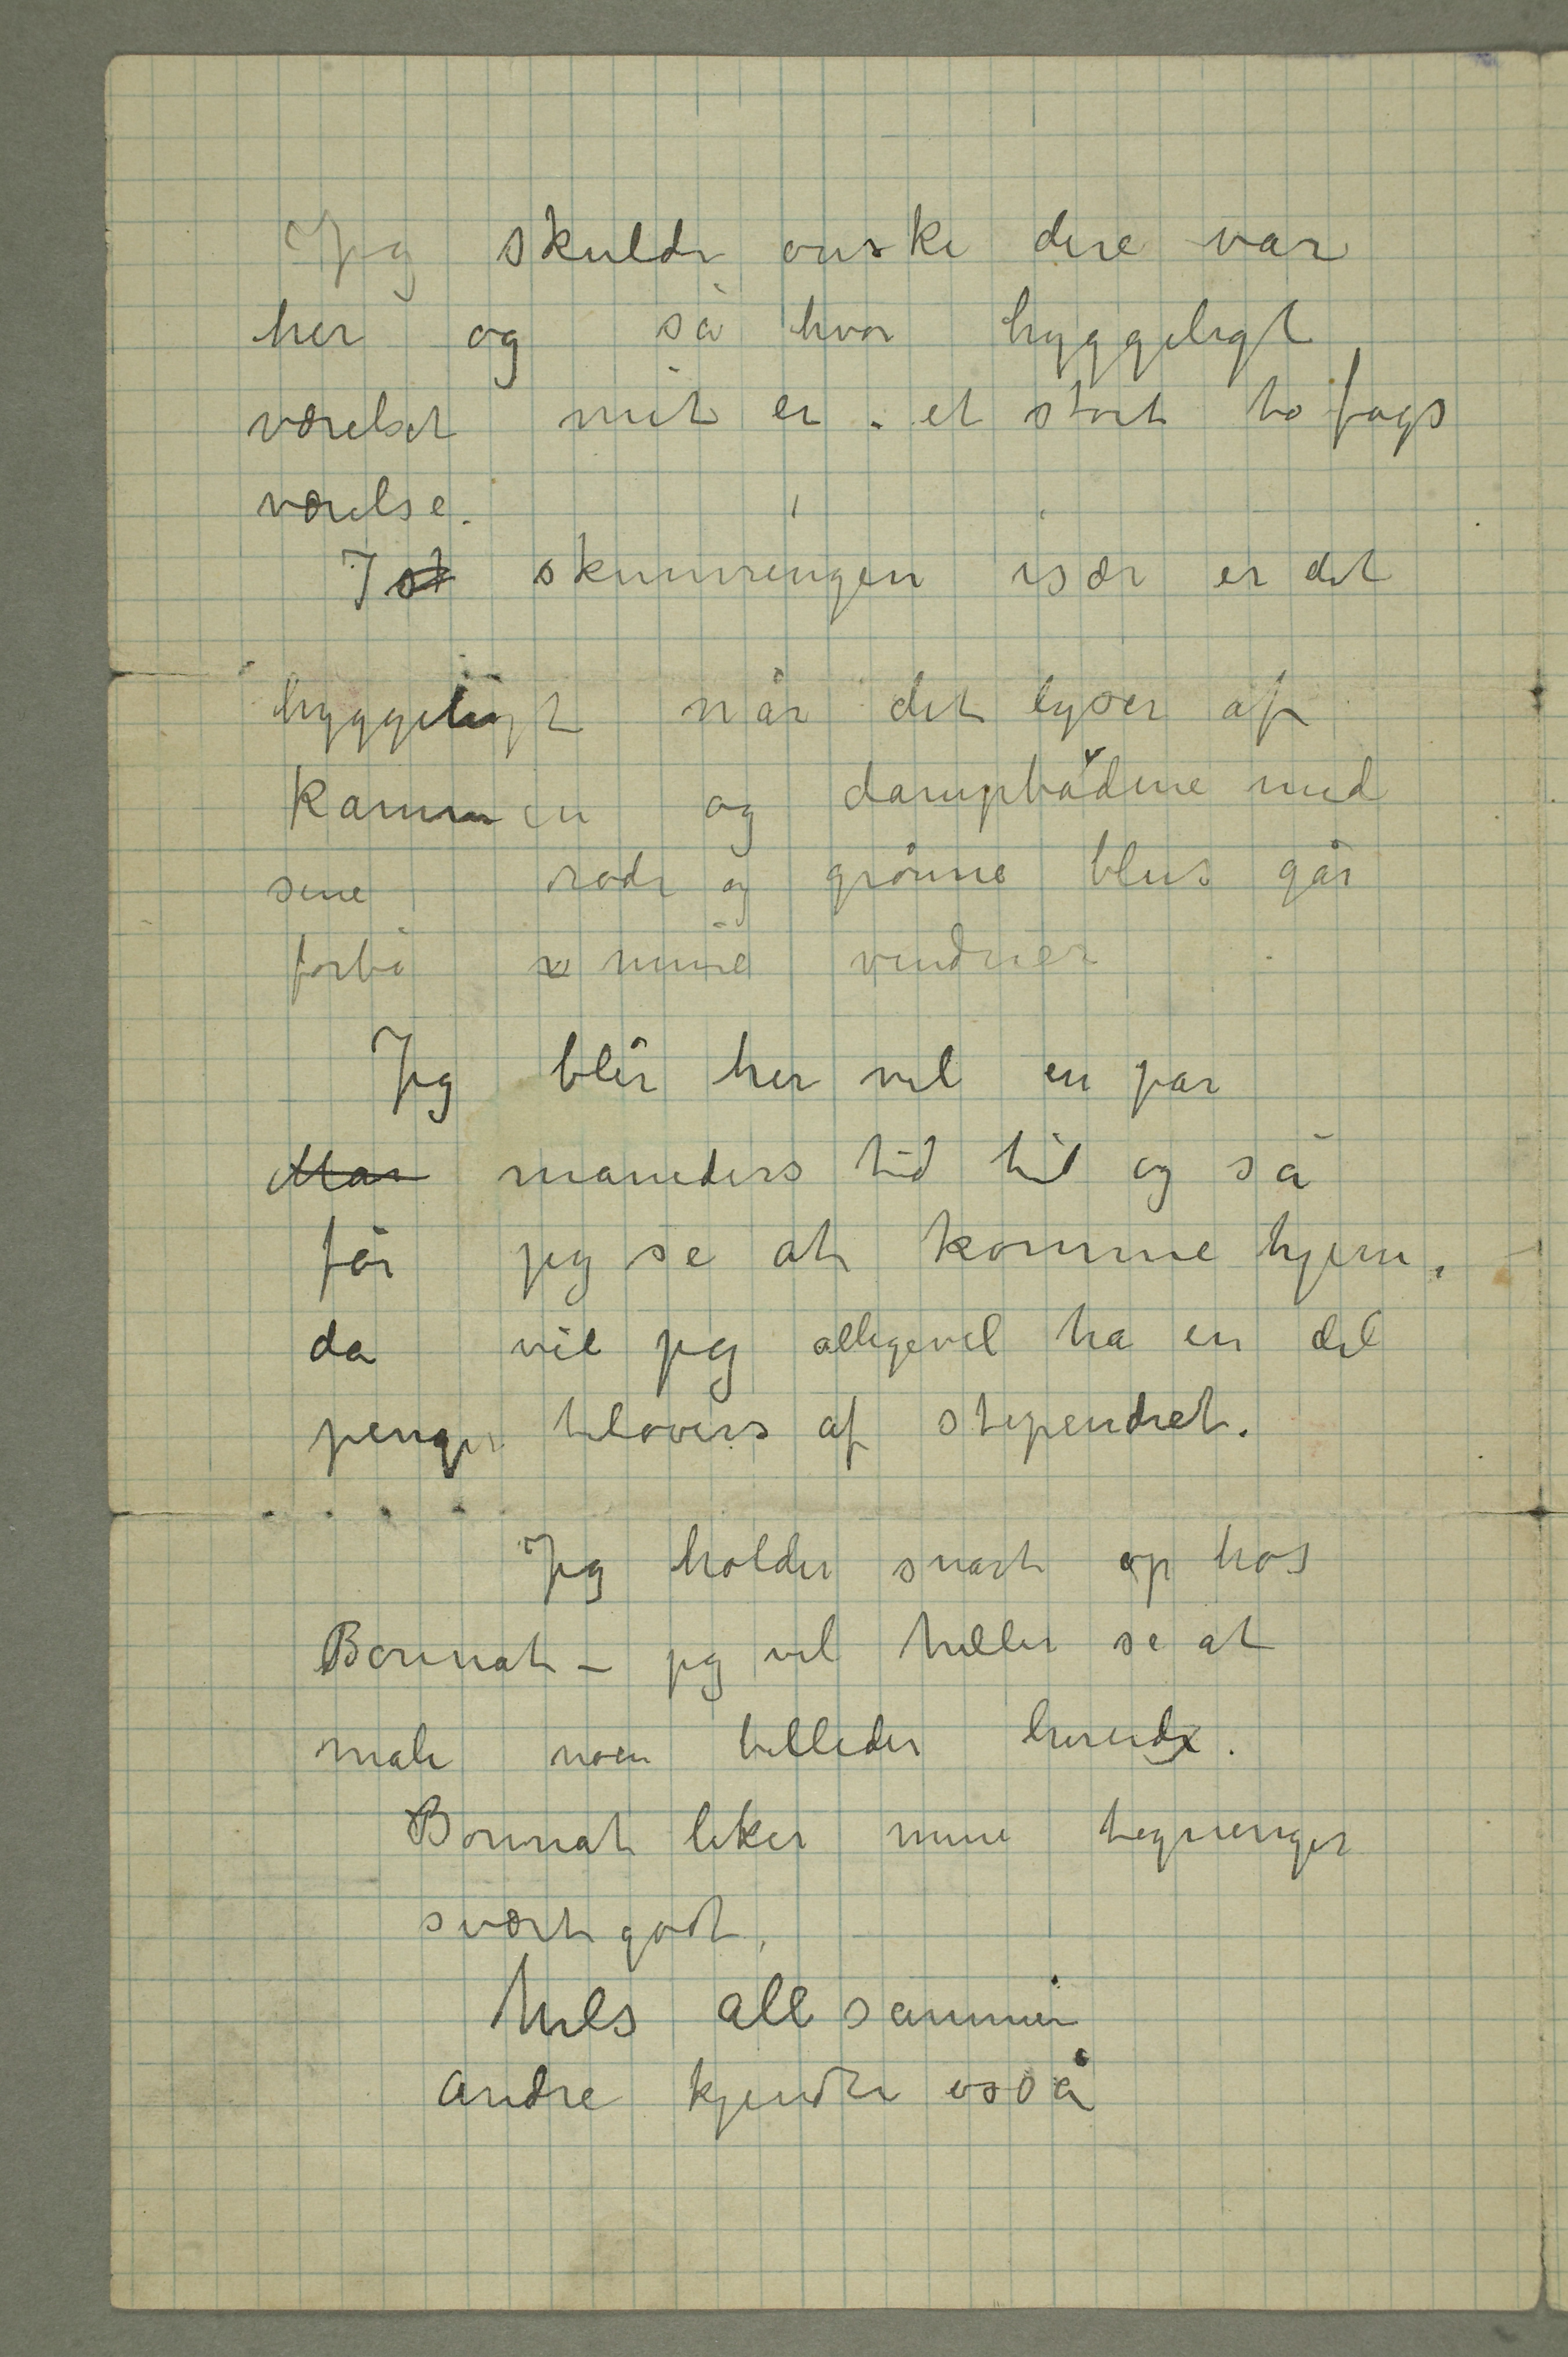 Jeg skulde ønske dere var
her og så hvor hyggeligt
værelset mit er. et stort to fags
værelse.
I st skumringen især er det
hyggeligt når det lyser af
kaminen og dampbådene med
sine røde og grønne blus går
forbi mine vinduer
Jeg blir her vel en par
Man maneders tid til og så
får jeg se at komme hjem,
da vil jeg alligevel ha en del
penger tilovers af stipendiet.
Jeg holder snart op hos
Bonnat – jeg vil heller se at
male noen billeder herinde.
Bonnat liker mine tegninger
svært godt,
hils allsammen
andre kjendte også